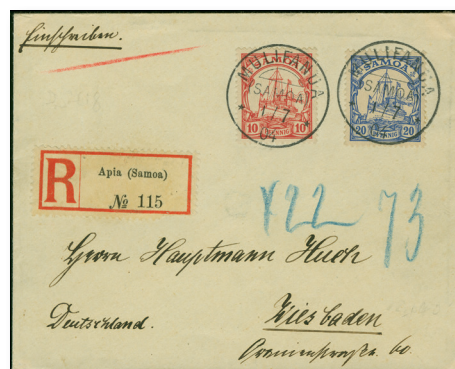 Einschreiben.
MULIFANUA
SAMOA
* 1/7 *
04
SAMOA
10 PFENNIG 10
MULIFANUA
SAMOA
1/7
SAMOA
20 PFENNIG 20
R
Apia (Samoa)
№ 115
73
Herrn Hauptmann Huch
Deutschland.
Wiesbaden
Oranienstraße 60.